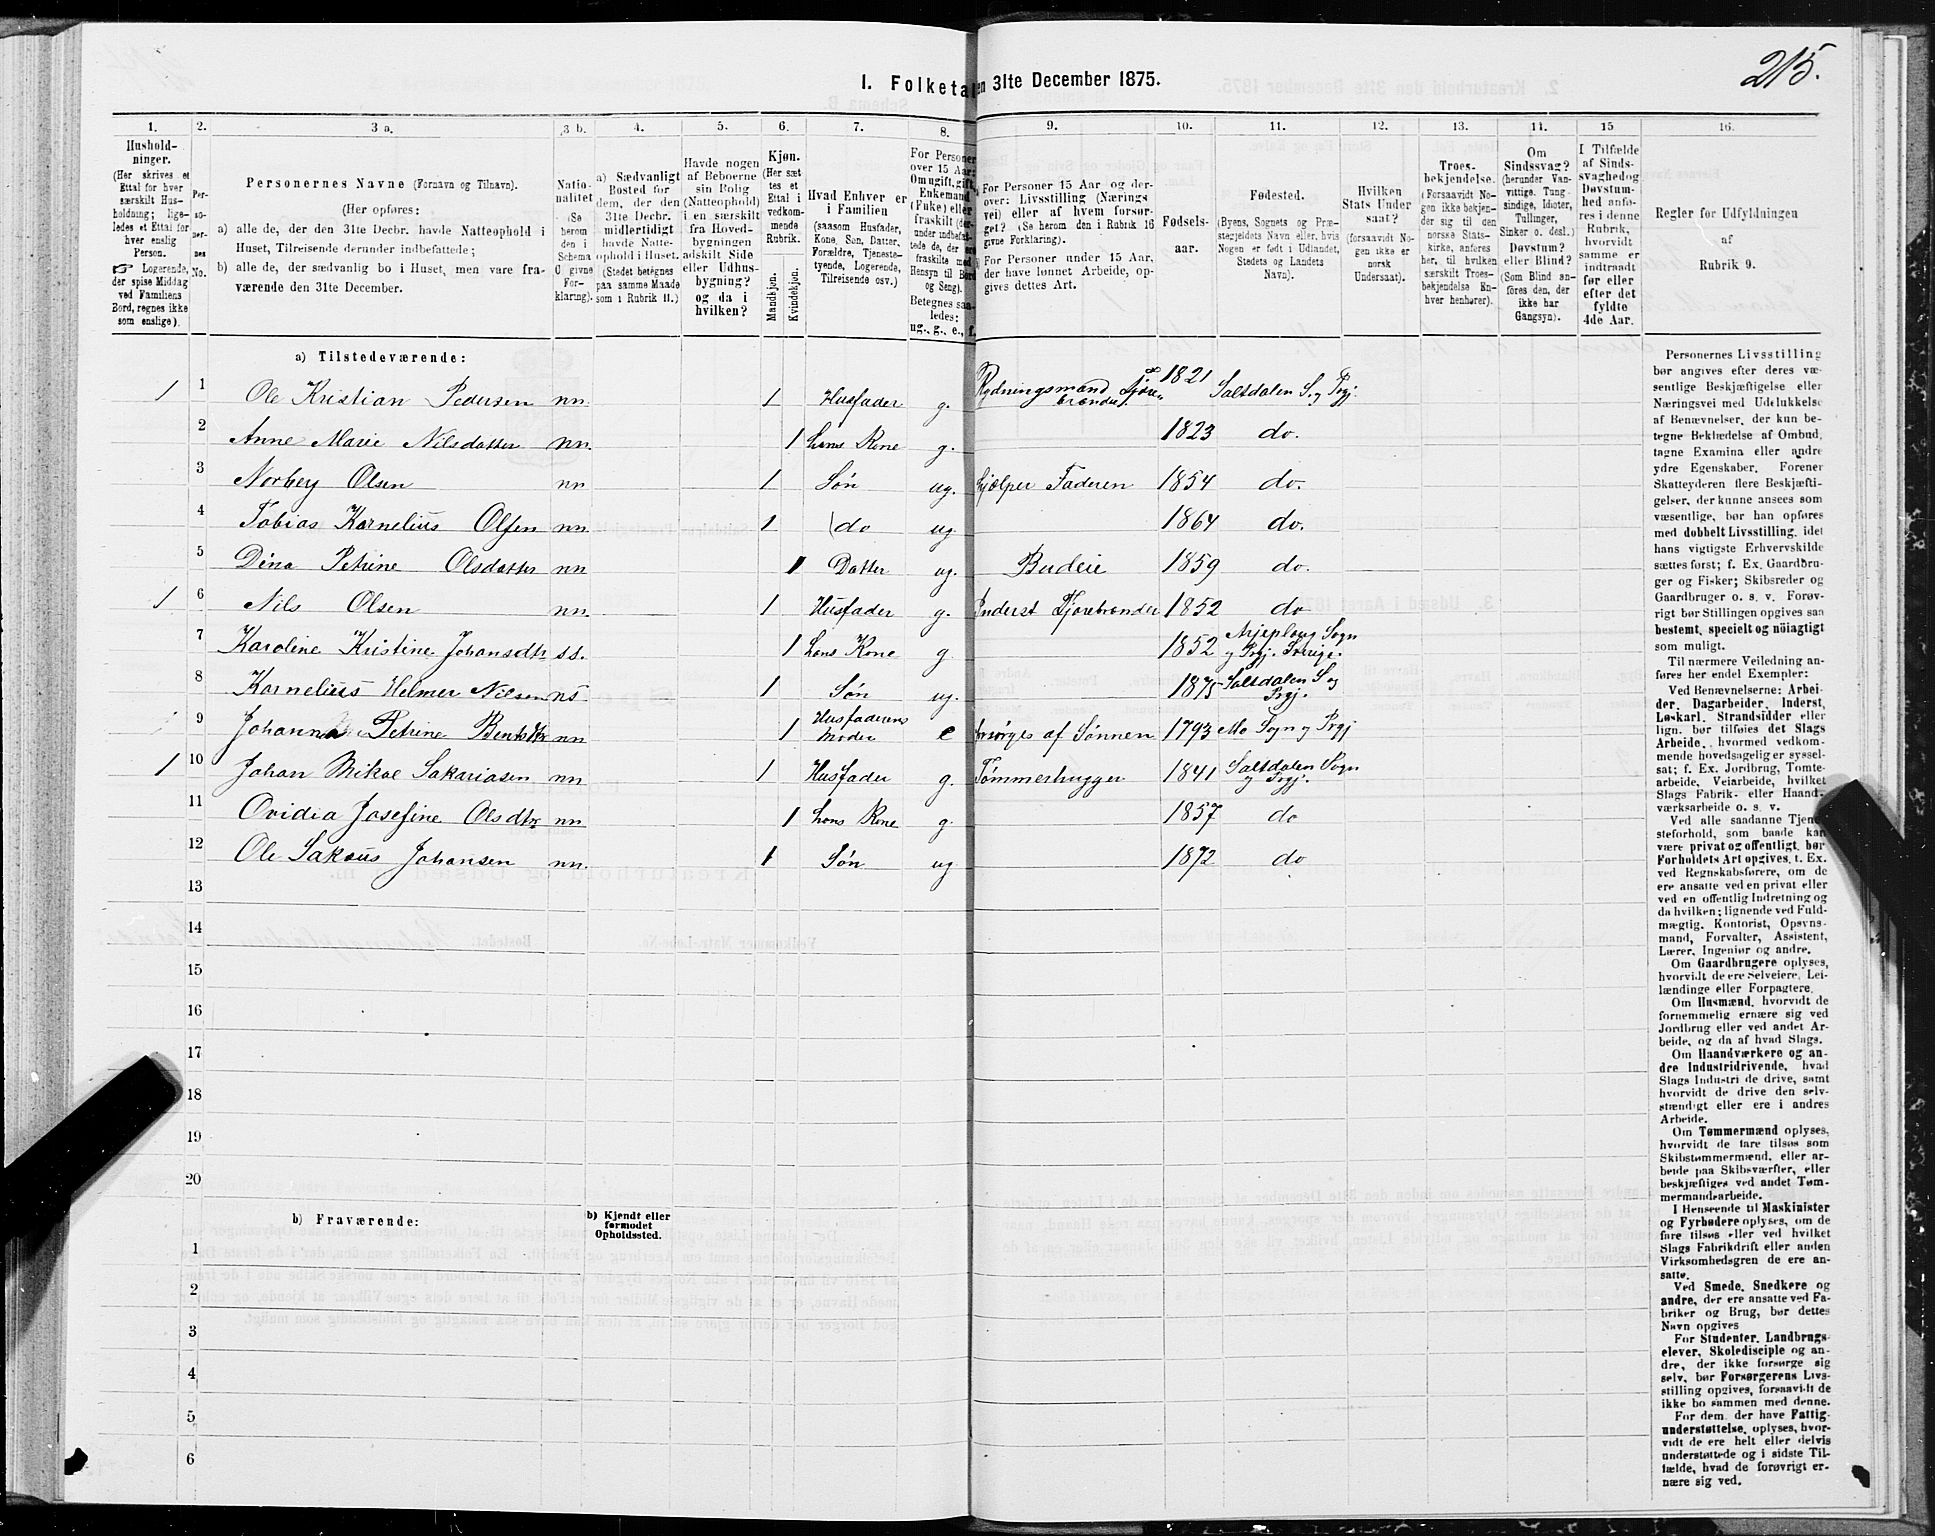 215.
I. Folketal en 31te December 1875.
1. 2. 3 a. 3 b. 4. 5. 6. 7. 8. 9. 10. 11. 12. 13. 14. 15 16.
Hushold-
ninger.
(Her skrives et
Ettal for hver
særskilt Hus-
holdning; lige-
ledes et Ettal for
hver enslig
Person.
☞ Logerende,
der spise Middag
ved Familiens
Bord, regnes ikke
som enslige).
Per-
so-
ner-
nes
No.
Personernes Navne (Fornavn og Tilnavn).
(Her opføres:
a) alle de, der den 31te Decbr. havde Natteophold i
Huset, Tilreisende derunder indbefattede;
b) alle de, der sædvanlig bo i Huset, men vare fra-
værende den 31te December.
Natio-
nalitet
(Se
herom
den i
Schema
C givne
For-
klaring).
a) Sædvanligt
Bosted for
dem, der den
31te Decbr.
midlertidigt
havde Natte-
ophold i Huset.
(Stedet betegnes
paa samme Maade
som i Rubrik 11.)
Havde nogen
af Beboerne
sin Bolig
(Natteophold)
i en særskilt
fra Hoved-
bygningen
adskilt Side
eller Udhus-
bygning?
og da i
hvilken?
Kjøn.
(Her sæt-
tes et
Ettal i
vedkom-
mende
Rubrik.
Mandkjøn.
Kvindekjøn.
Hvad Enhver er
i Familien
(saasom Husfader,
Kone, Søn, Datter,
Forældre, Tjeneste-
tyende, Logerende,
Tilreisende osv.)
For Personer
over 15 Aar:
Om ugift, gift,
Enkemand
(Enke) eller
fraskilt (der-
under indbefat-
tede de, der ere
fraskilte med
Hensyn til Bord
og Seng).
Betegnes saa-
ledes:
ug., g., e., f.
For Personer 15 Aar og der-
over: Livsstilling (Nærings
vei) eller af hvem forsør-
get? (Se herom den i Rubrik 16
givne Forklaring).
For Personer under 15 Aar,
der have lønnet Arbeide, op-
gives dettes Art.
Fødsels-
aar.
Fødested.
(Byens, Sognets og Præ-
stegjeldets Navn eller, hvis
Nogen er født i Udlandet,
Stedets og Landets
Navn).
Hvilken
Stats Under
saat?
(forsaavidt No-
gen ikke er
norsk
Undersaat).
Troes-
bekjendelse.
(Forsaavidt No-
gen ikke bekjen-
der sig til den
norske Stats-
kirke, anføres
her, til hvilken
særskilt Troes-
bekjendelse En-
hver henhører).
Om
Sindssvag?
(herunder Van-
vittige, Tung-
sindige, Idioter,
Tullinger,
Sinker o. desl.)
Døvstum?
eller Blind?
(Som Blind an-
føres den, der
ikke har
Gangsyn).
I Tilfælde
af Sinds-
svaghed og
Døvstum-
hed anfø-
res i denne
Rubrik,
hvorvidt
samme er
indtraadt
før eller
efter det
fyldte
4de Aar.
Regler for Udfyldningen
af
Rubrik 9.
a) Tilstedeværende:
1 1 Ole Kristian Pedersen nn. 1 Husfader g. Rydningsmand & Tjære-brænder 1821 Saltdalen S. og Prgj.
2 Anne Marie Nilsdatter nn. 1 hans Kone g. 1823 do.
3 Norbey Olsen nn 1 Søn ug. hjælper Faderen 1854 do.
4 Tobias Kornelius Olsen nn. 1 do ug 1864 do.
5 Dina Petrine Olsdatter nn 1 Datter ug. Budeie 1859 do.
1 6 Nils Olsen nn. 1 Husfader g. Inderst Tjærebrænder 1852 do
7 Karoline Kristine Johansdtr ss. 1 hans Kone g 1852 Arjeploug Sogn og Prgj. Sverige.
8 Kornelius Helmer Nilsen ns 1 Søn ug. 1875 Saltdalen S og Prgj.
9 Johanna Petrine Bentsdtr nn 1 Husfaderens Moder e forsørges af Sønnen 1793 Mo Sogn og Prgj
1 10 Johan Mikal Sakariasen nn. 1 Husfader g. Tømmerhugger 1841 Saltdalen Sogn og Prgj.
11 Ovidia Josefine Olsdtr nn. 1 hans Kone g. 1857 do
12 Ole Sakæus Johansen nn. 1 Søn ug 1872 do
13
14
15
16
17
18
19
20
b) Fraværende:
b) Kjendt eller
formodet
Opholdssted.
1
2
3
4
5
6
Personernes Livsstilling
bør angives efter deres væ-
sentlige Beskjæftigelse eller
Næringsvei med Udelukkelse
af Benævnelser, der kun be-
tegne Beklædelse af Ombud,
tagne Examina eller andre
ydre Egenskaber. Forener
Skatteyderen flere Beskjæfti-
gelser, der kunne ansees som
væsentlige, bør han opføres
med dobbelt Livsstilling, idet
hans vigtigste Erhvervskilde
sættes først; f. Ex. Gaardbru-
ger og Fisker; Skibsreder og
Gaardbruger o. s. v. Forøv-
rigt bør Stillingen opgives saa
bestemt, specielt og nöiagtigt
som muligt.
Til nærmere Veiledning an-
føres her endel Exempler:
Ved Benævnelserne: Arbei-
der, Dagarbeider, Inderst,
Løskarl, Strandsidder eller
lign. bør tilføies det Slags
Arbeide, hvormed vedkom-
mende hovedsagelig er syssel-
sat; f. Ex. Jordbrug, Tomte-
arbeide, Veiarbeide, hvilket
Slags Fabrik- eller Haand-
værksarbeide o. s. v.
Ved alle saadanne Tjene-
steforhold, som baade kan
være privat og offentligt, bør
Forholdets Art opgives, t. Ex.
ved Regnskabsførere, om de
ere ansatte ved en privat eller
ved en offentlig Indretning og
da hvilken; lignende ved Fuld-
mægtig, Kontorist, Opsyns-
mand, Forvalter, Assistent,
Lærer, Ingeniør og andre.
Om Gaardbrugere oplyses,
hvorvidt de ere Selveiere, Lei-
lændinge eller Forpagtere.
Om Husmænd, hvorvidt de
fornemmelig ernære sig ved
Jordbrug eller ved andet Ar-
beide, og da af hvad Slags.
Om Haandværkere og an-
dre Industridrivende, hvad
Slags Industri de drive, samt
hvorvidt de drive den selv-
stændigt eller ere i andres
Arbeide.
Om Tømmermænd oplyses,
hvorvidt de fare tilsøs som
Skibstømmermænd, eller ar-
beide paa Skibsværfter, eller
beskjæftiges ved andet Tøm-
mermandsarbeide.
I Henseende til Maskinister
og Fyrbødere oplyses, om de
fare tilsøs eller ved hvilket
Slags Fabrikdrift eller anden
Virksomhedsgren de ere an-
satte.
Ved Smede, Snedkere og
andre, der ere ansatte ved Fa-
briker og Brug, bør dettes
Navn opgives
For Studenter, Landbrugs-
elever, Skoledisciple og an-
dre, der ikke forsørge sig
selv, bør Forsørgerens Livs-
stilling opgives, forsaavidt de
ikke bo sammen med denne.
For dem, der have Fattig-
understøttelse, oplyses, hvor-
vidt de ere helt eller delvis
understøttede og i sidste Til-
fælde, hvad de forøvrigt er-
nære sig ved.